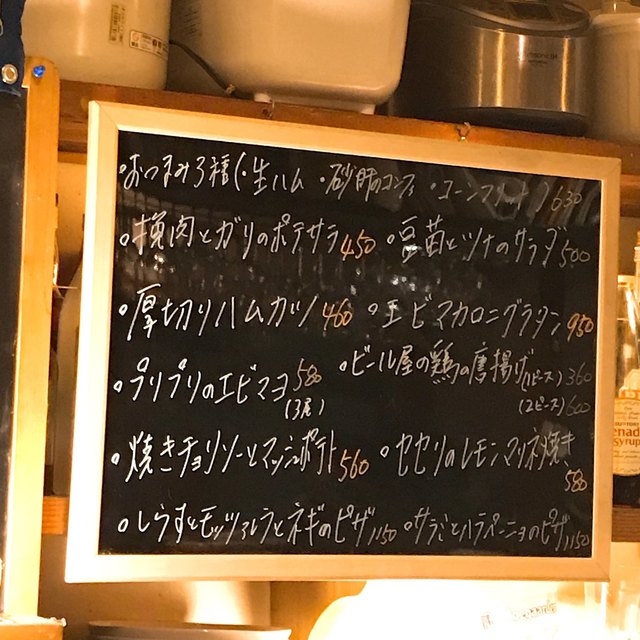 おつまみ3種(・生ハム ・砂肝のコンフィ ・コーンフリット)630
挽肉とガリのポテサラ 450 ・豆苗とツナのサラダ 500
厚切りハムカツ 460 ・エビマカロニグラタン 950
プリプリのエビマヨ 580 (3尾) ・ビール屋の鶏の唐揚げ(1ピース)360
(2ピース)600
焼きチョリソーとマッシュポテト 560 ・セセリのレモンマリネ焼き
580
しらすとモッツァレラとネギのピザ 1150 ・サラミとハラペーニョのピザ 1150